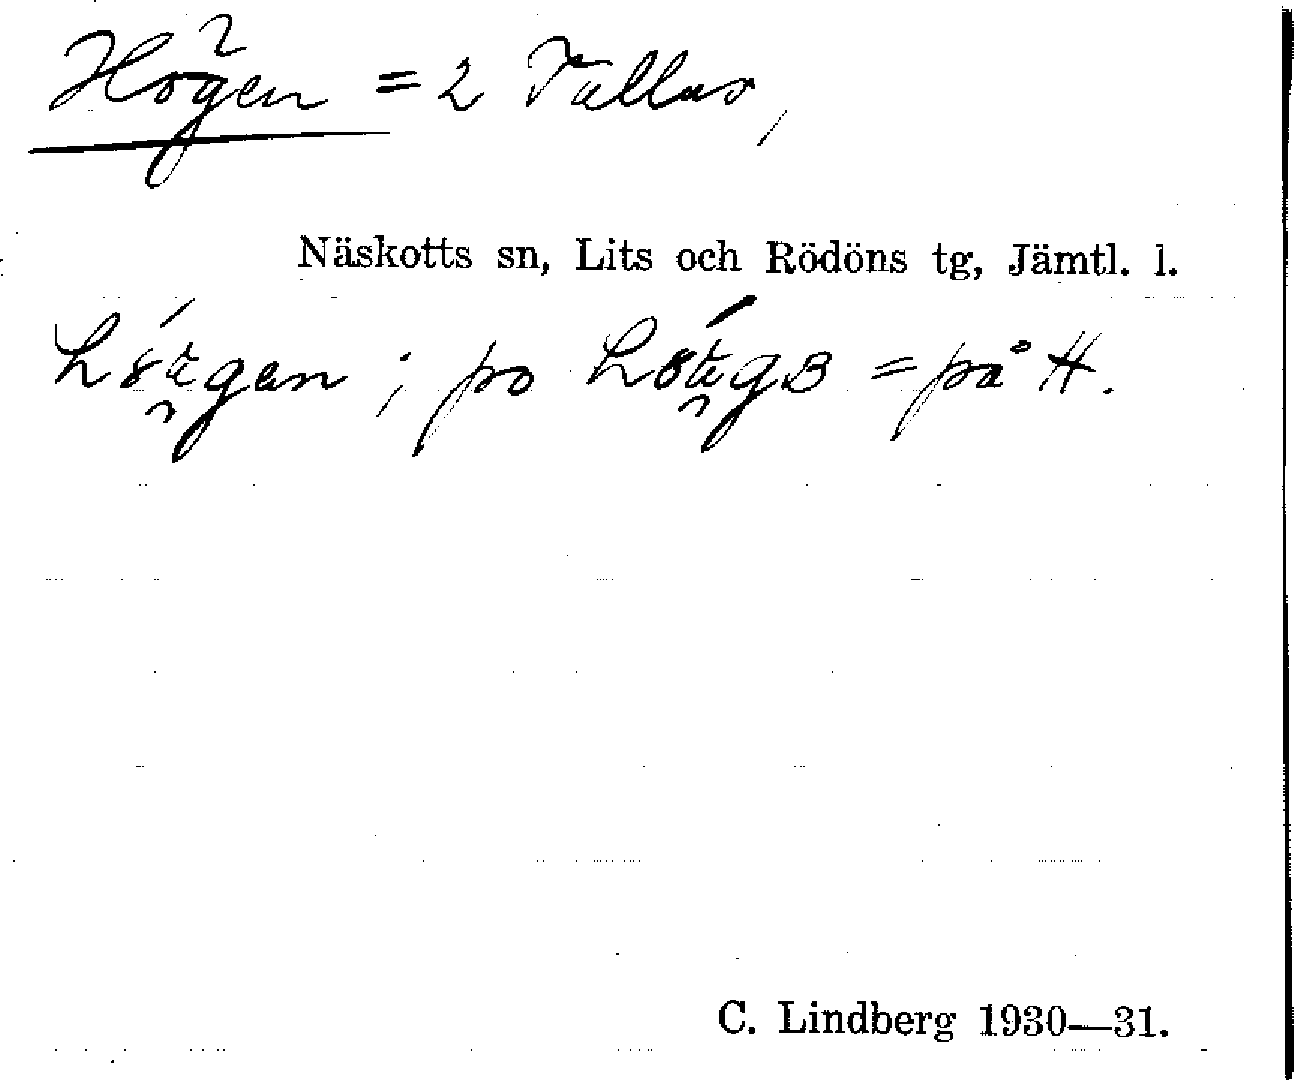 Högen = 2 Tullus,
Näskotts sn, Lits och Rödöns tg, Jämtl. l.
; po = på H.
C. Lindberg 1930—31.